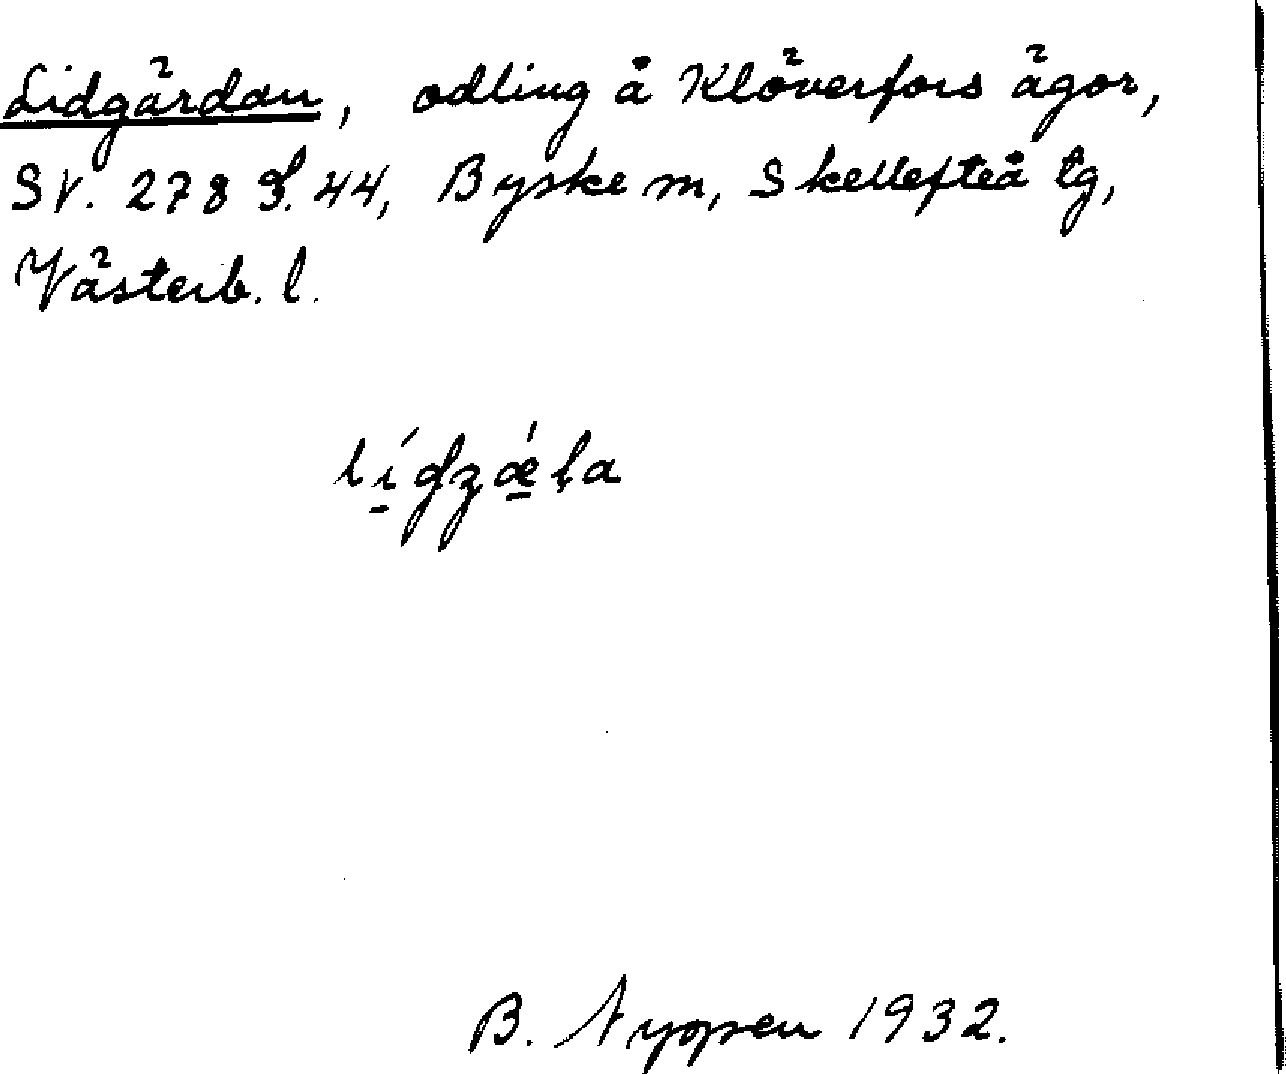 Lidgärdan, odling å Klöverfors ägor,
SV. 278 S. 44, Byske sn, Skellefteå tg,
Västerb. l.
B. Nyopen 1932.